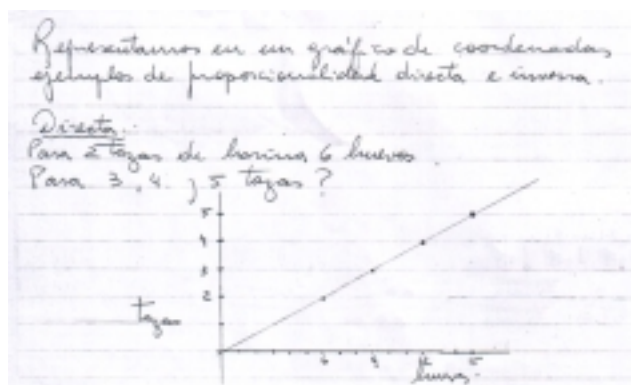 Representamos en un gráfico de coordenadas
ejemplos de proporcionalidad directa e inversa.
Directa.
Para 2 tazas de harina 6 huevos
Para 3, 4, 5 tazas?
5
4
3
2
Tazas
6 9 12 15
huevos.